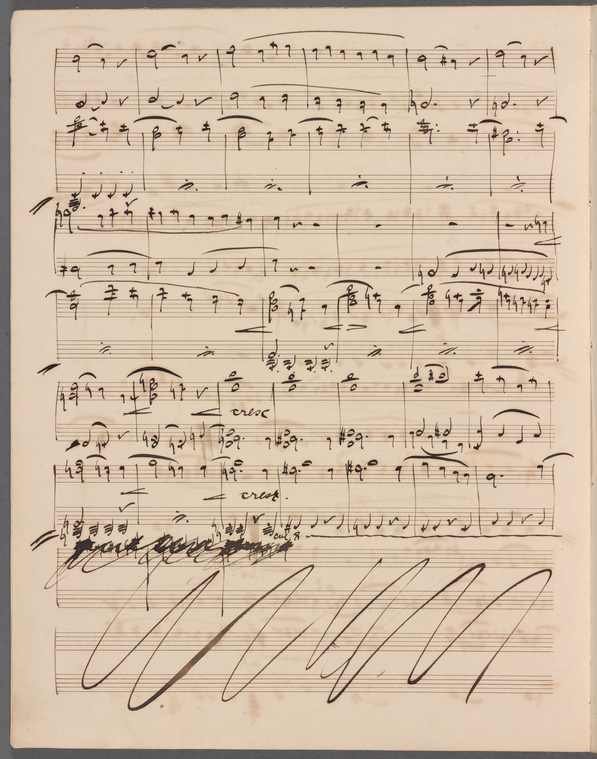 cresc
cresc.
col 8